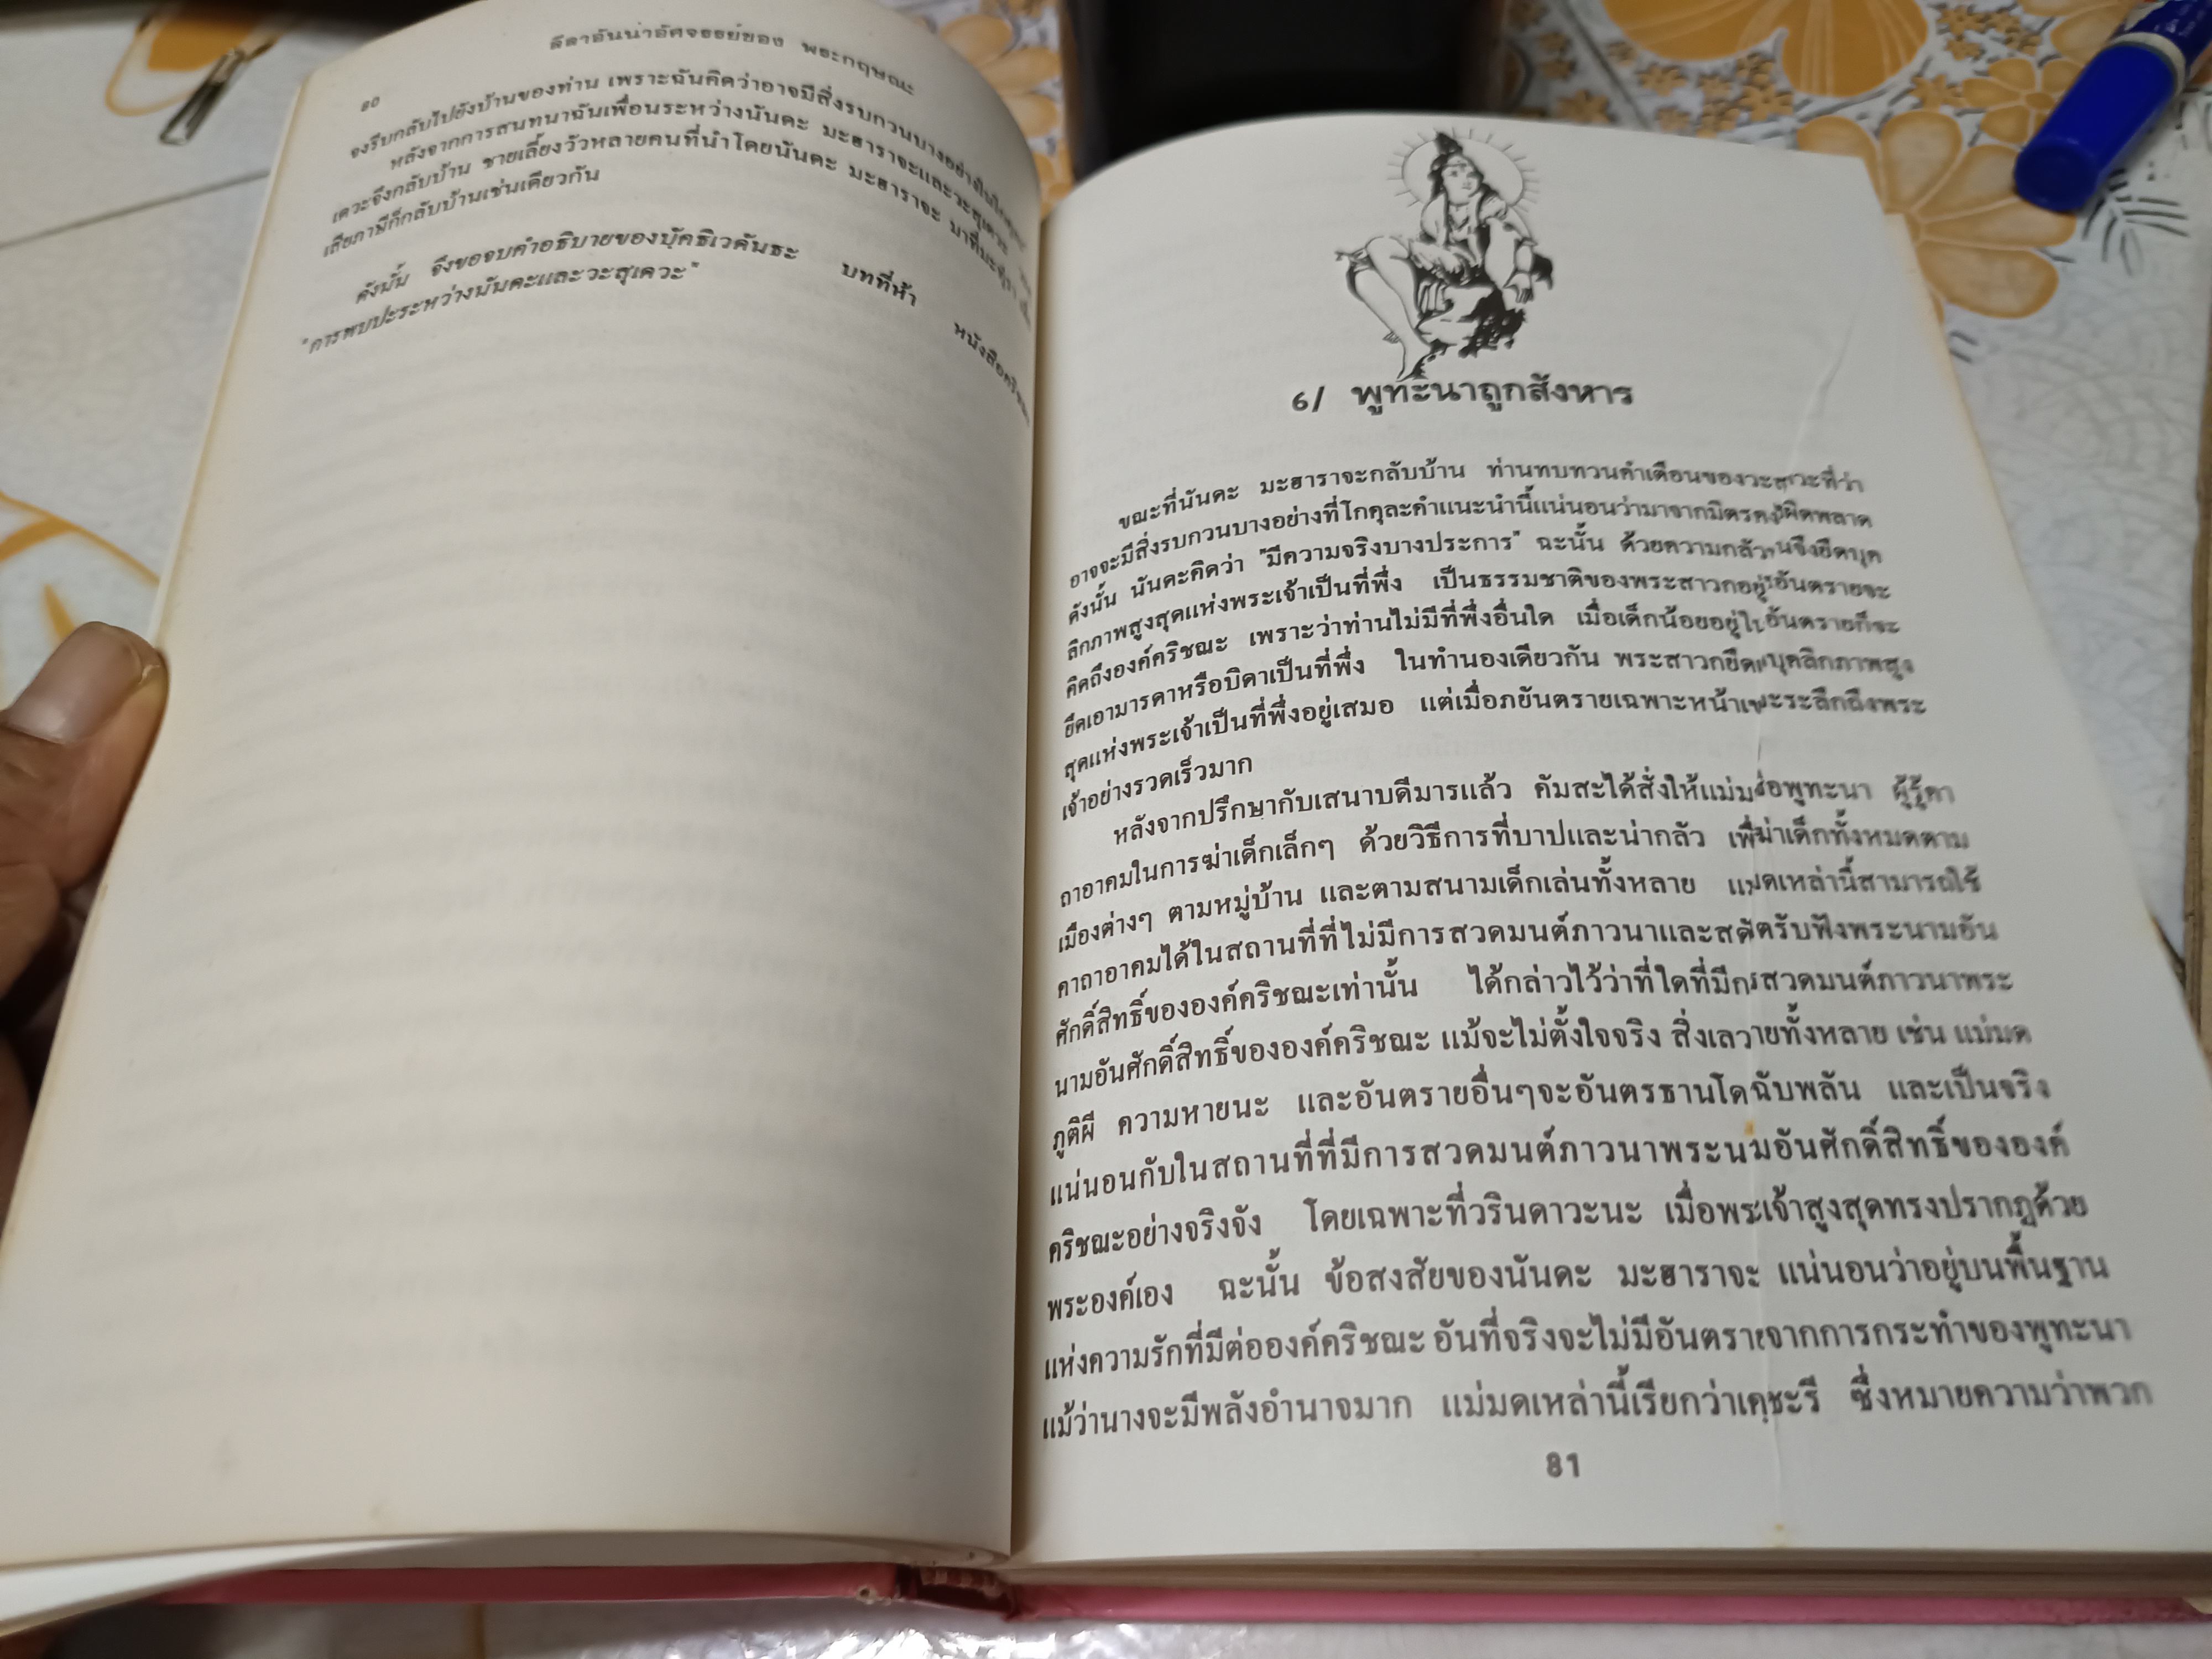 80
ลีลาอันน่าอัศจรรย์ของ พระกฤษณะ
จงรีบกลับไปยังบ้านของท่าน เพราะฉันคิดว่าอาจมีสิ่งรบกวนบางอย่างใน
หลังจากการสนทนาฉันเพื่อนระหว่างนันดะ มะฮาราจะและวะสุเดวะ
เดวะจึงกลับบ้าน ชายเลี้ยงวัวหลายคนที่นำโดยนันดะ มะฮาราจะ มาที่มะทุรา
เสียภาษีก็กลับบ้านเช่นเดียวกัน
ดังนั้น จึงขอจบคำอธิบายของบัคธิเวดันธะ บทที่ห้า หนังสือ
"การพบปะระหว่างนันดะและวะสุเดวะ"
6/ พูทะนาถูกสังหาร
ขณะที่นันดะ มะฮาราจะกลับบ้าน ท่านทบทวนคำเตือนของ ที่ว่า
อาจจะมีสิ่งรบกวนบางอย่างที่โกคุละคำแนะนำนี้แน่นอนว่ามาจากมิตร ผิดพลาด
ดังนั้น นันดะคิดว่า "มีความจริงบางประการ" ฉะนั้น ด้วยความกลัว จึงยึดบุค
ลิกภาพสูงสุดแห่งพระเจ้าเป็นที่พึ่ง เป็นธรรมชาติของพระสาวกอยู่ อันตรายจะ
คิดถึงองค์คริชณะ เพราะว่าท่านไม่มีที่พึ่งอื่นใด เมื่อเด็กน้อยอยู่ใ อันตรายก็จะ
ยึดเอามารดาหรือบิดาเป็นที่พึ่ง ในทำนองเดียวกัน พระสาวกยึด บุคลิกภาพสูง
สุดแห่งพระเจ้าเป็นที่พึ่งอยู่เสมอ แต่เมื่อภยันตรายเฉพาะหน้า จะระลึกถึงพระ
เจ้าอย่างรวดเร็วมาก
หลังจากปรึกษากับเสนาบดีมารแล้ว คัมสะได้สั่งให้แม่ม ชื่อพูทะนา ผู้รู้คา
ถาอาคมในการฆ่าเด็กเล็กๆ ด้วยวิธีการที่บาปและน่ากลัว เพื่ ฆ่าเด็กทั้งหมดตาม
เมืองต่างๆ ตามหมู่บ้าน และตามสนามเด็กเล่นทั้งหลาย แม่มดเหล่านี้สามารถใช้
คาถาอาคมได้ในสถานที่ที่ไม่มีการสวดมนต์ภาวนาและสดับรับฟังพระนามอัน
ศักดิ์สิทธิ์ขององค์คริชณะเท่านั้น ได้กล่าวไว้ว่าที่ใดที่มีการสวดมนต์ภาวนาพระ
นามอันศักดิ์สิทธิ์ขององค์คริชณะ แม้จะไม่ตั้งใจจริง สิ่งเลวร้ายทั้งหลาย เช่น แม่มด
ภูติผี ความหายนะ และอันตรายอื่นๆจะอันตรธานโดยฉับพลัน และเป็นจริง
แน่นอนกับในสถานที่ที่มีการสวดมนต์ภาวนาพระนามอันศักดิ์สิทธิ์ขององค์
คริชณะอย่างจริงจัง โดยเฉพาะที่วรินดาวะนะ เมื่อพระเจ้าสูงสุดทรงปรากฏด้วย
พระองค์เอง ฉะนั้น ข้อสงสัยของนันดะ มะฮาราจะ แน่นอนว่าอยู่บนพื้นฐาน
แห่งความรักที่มีต่อองค์คริชณะ อันที่จริงจะไม่มีอันตรายจากการกระทำของพูทะนา
แม้ว่านางจะมีพลังอำนาจมาก แม่มดเหล่านี้เรียกว่าเคชะรี ซึ่งหมายความว่าพวก
81